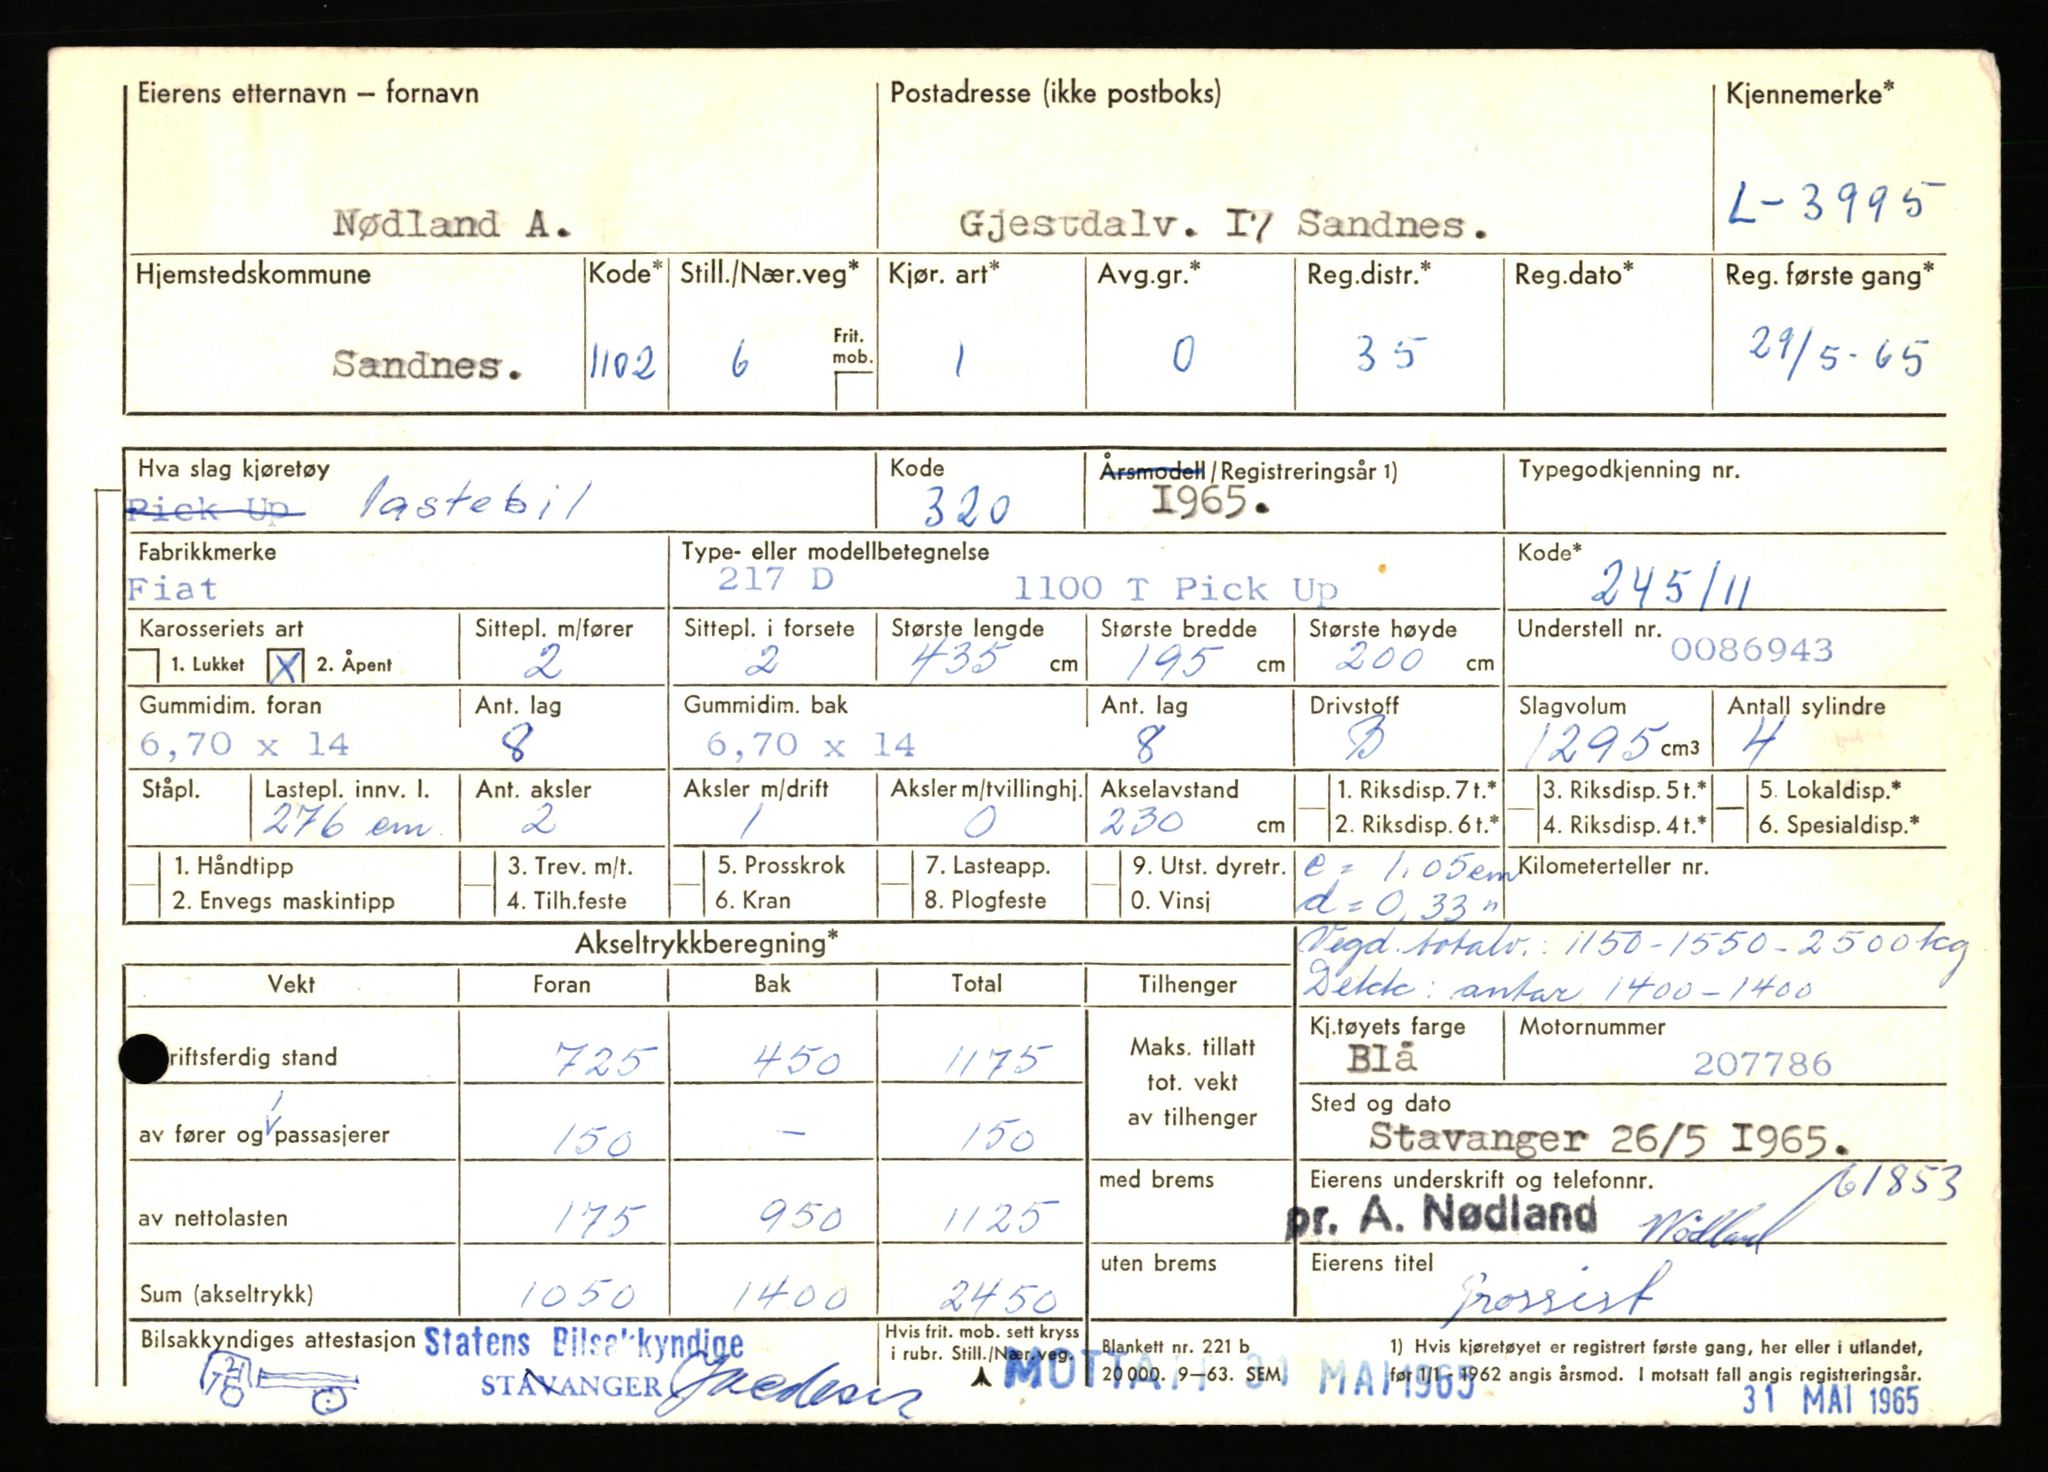 Eierens etternavn – fornavn Postadresse (ikke postboks) Kjennemerke*
Nødland A. Gjestdalv. I7 Sandnes. L-3995
Hjemstedskommune Kode* Still./Nær.veg* Kjør. art* Avg.gr.* Reg.distr.* Reg.dato* Reg. første gang*
Frit. mob.
Sandnes. 1102 6 1 0 35 29/5-65
Hva slag kjøretøy Kode Årsmodell/Registreringsår 1) Typegodkjenning nr.
Pick Up lastebil 320 I965.
Fabrikkmerke Type- eller modellbetegnelse Kode*
Fiat 217 D 1100 T Pick Up 245/11
Karosseriets art Sittepl. m/fører Sittepl. i forsete Største lengde Største bredde Største høyde Understell nr.
1. Lukket X 2. Åpent 2 2 435 cm 195 cm 200 cm 0086943
Gummidim. foran Ant. lag Gummidim. bak Ant. lag Drivstoff Slagvolum Antall sylindre
6,70 x 14 8 6,70 x 14 8 B 1295 cm3 4
Ståpl. Lastepl. innv. l. Ant. aksler Aksler m/drift Aksler m/tvillinghj. Akselavstand 1. Riksdisp. 7 t.* 3. Riksdisp. 5 t.* 5. Lokaldisp.*
276 cm 2 1 0 230 cm 2. Riksdisp. 6 t.* 4. Riksdisp. 4 t.* 6. Spesialdisp.*
1. Håndtipp 3. Trev. m/t. 5. Prosskrok 7. Lasteapp. 9. Utst. dyretr. c = 1.05 cm Kilometerteller nr.
2. Envegs maskintipp 4. Tilh.feste 6. Kran 8. Plogfeste 0. Vinsj d = 0,33 "
Akseltrykkberegning* Vegd. totalv.: 1150-1550-2500kg
Vekt Foran Bak Total Tilhenger Dekk: antar 1400-1400
Kj.tøyets farge Motornummer
riftsferdig stand 725 450 1175 Maks. tillatt Blå 207786
tot. vekt
av tilhenger
Sted og dato
av fører og 1 passasjerer 150 – 150 Stavanger 26/5 I965.
med brems Eierens underskrift og telefonnr. 61853
av nettolasten 175 950 1125 pr. A. Nødland Nødland
uten brems Eierens titel
Sum (akseltrykk) 1050 1400 2450 Grossist
Bilsakkyndiges attestasjon Statens Bilsakkyndige Hvis frit. mob. sett kryss Blankett nr. 221 b 1) Hvis kjøretøyet er registrert første gang, her eller i utlandet,
STAVANGER i rubr. Still./Nær.veg. 20 000. 9–63. SEM før 1/1 - 1962 angis årsmod. I motsatt fall angis registreringsår.
MOTTATT 31 MAI 1965 31 MAI 1965